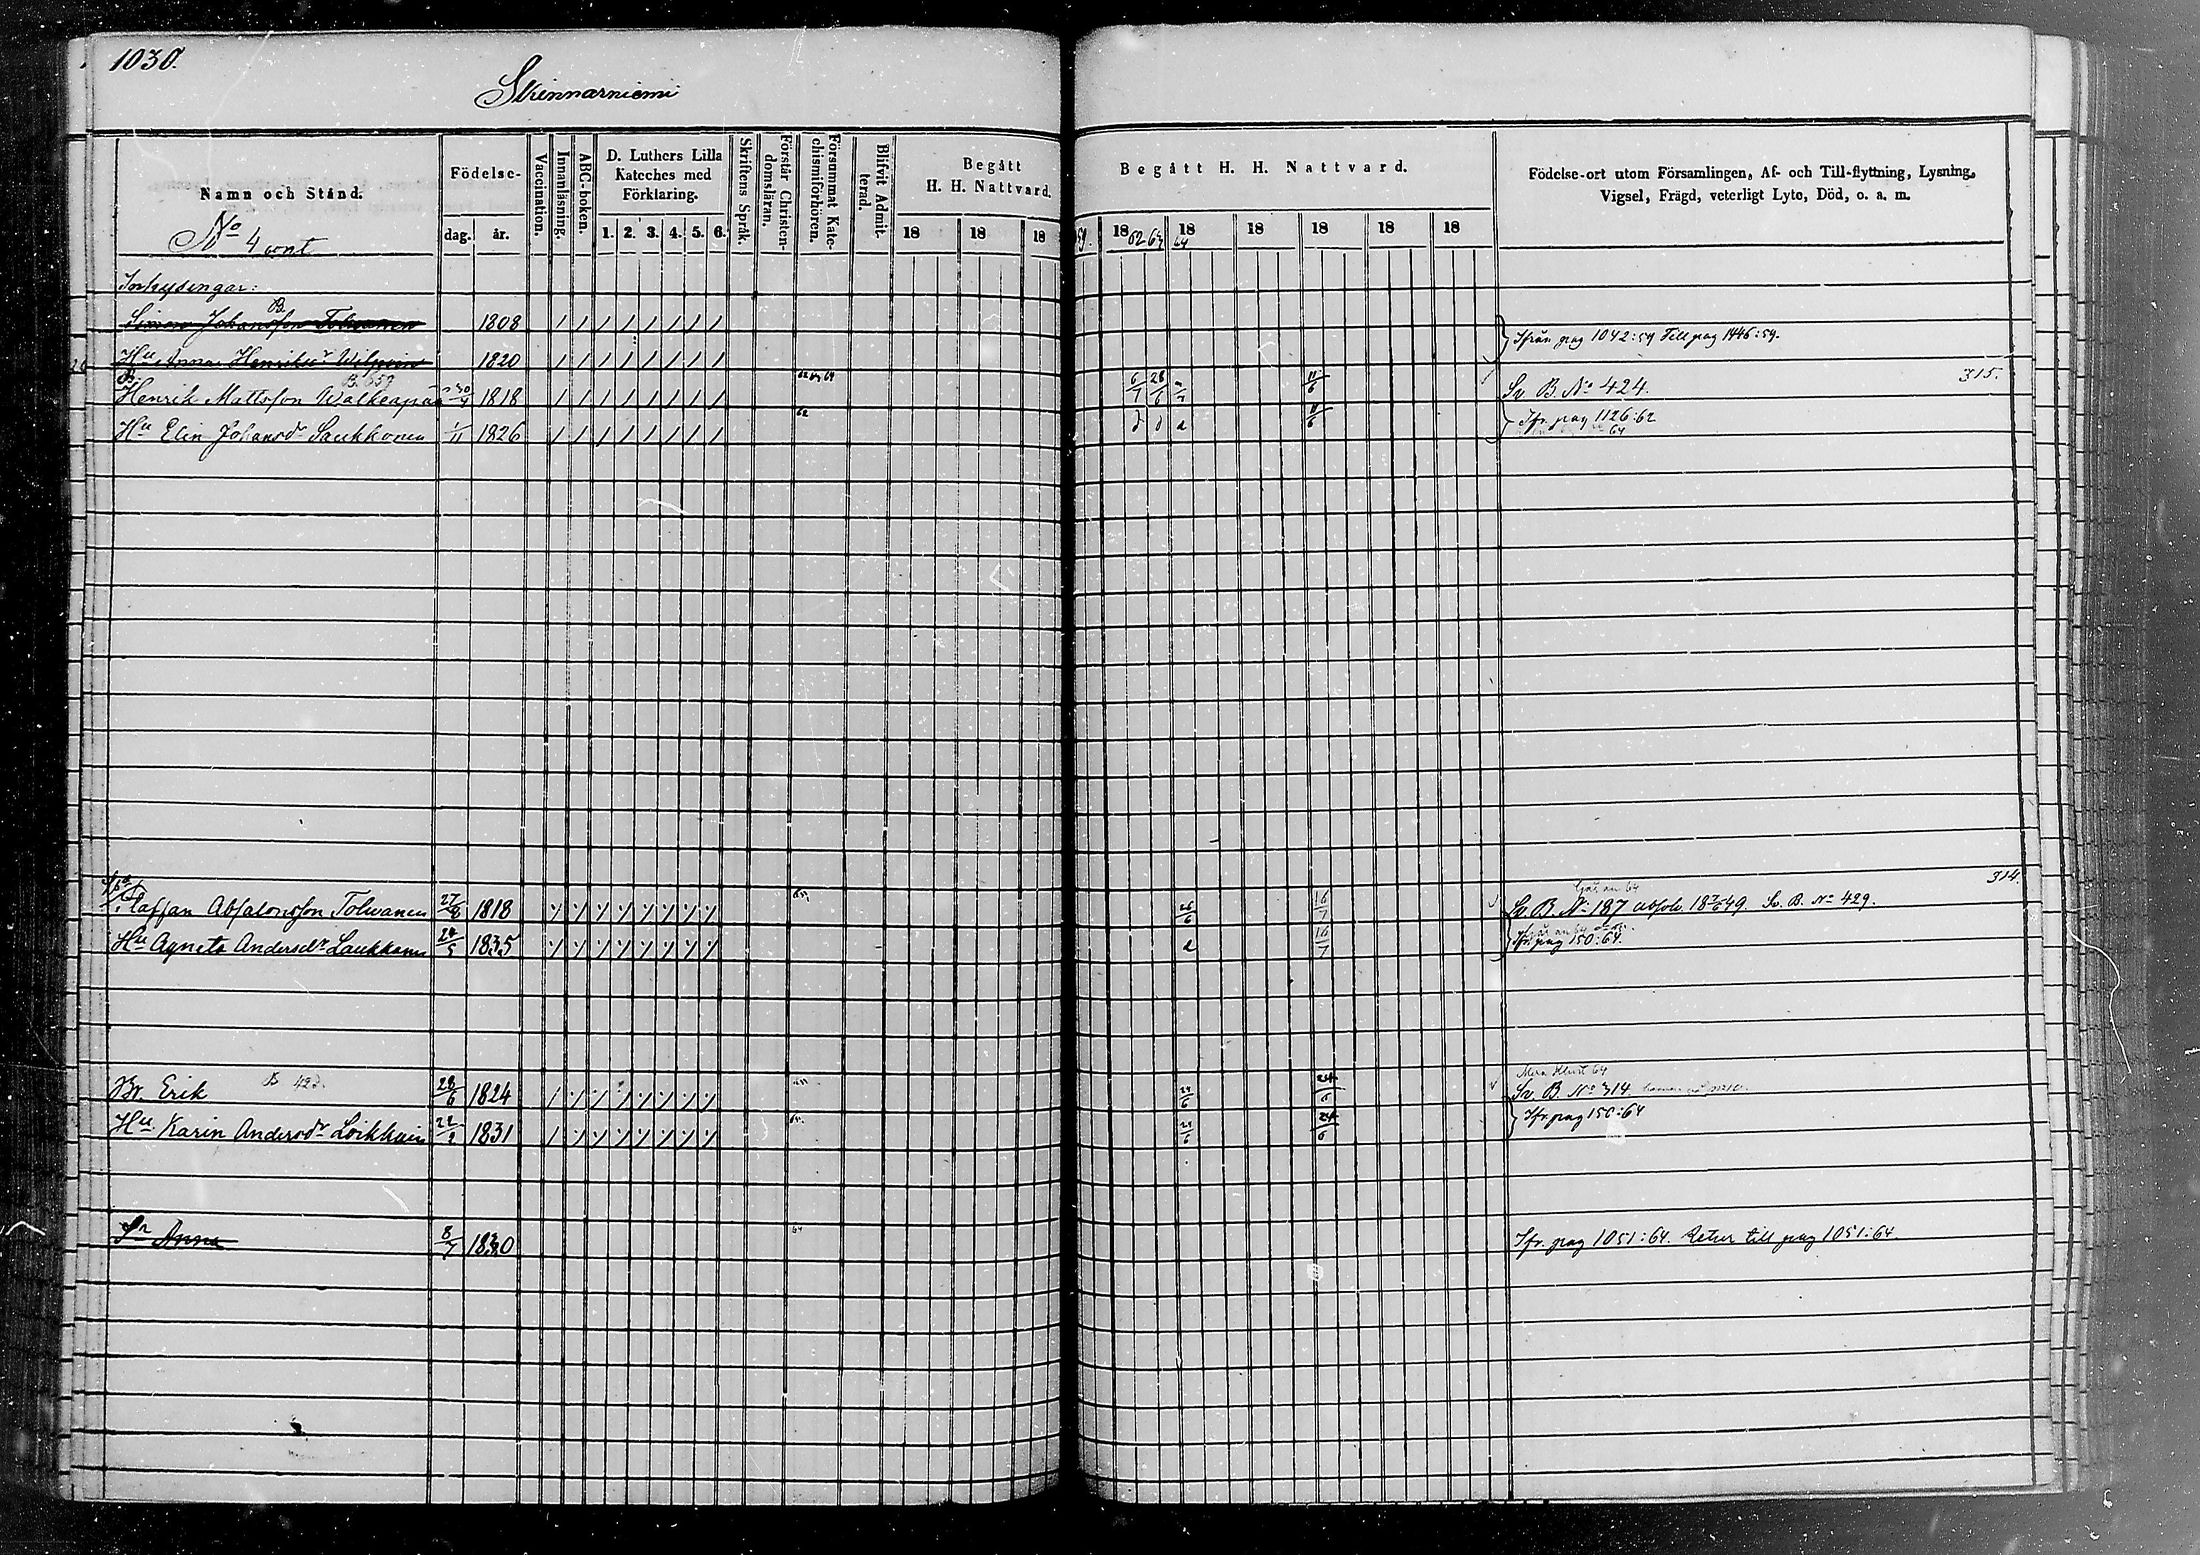 1030.
Skinnarniemi
Namn och Stånd.
Födelse-
dag. år.
Vaccination.
Innanläsning.
ABC-boken.
D. Luthers Lilla
Kateches med
Förklaring.
1. 2. 3. 4. 5. 6.
Skriftens Språk.
Förstår Christen-
domsläran.
Försummat Kate-
chismiförhören.
Blifvit Admit-
terad.
Begått
H. H. Nattvard.
18 18 18
Begått H. H. Nattvard.
59. 18 62 64 18 64 18 18 18 18
Födelse-ort utom Församlingen, Af- och Till-flyttning, Lysning,
Vigsel, Frägd, veterligt Lyte, Död, o. a. m.
No 4 cont
Inhysingar:
B.
Simon Johansson Tolwanen 1808 / / / / / / / /
Ifrån pag 1042:59 Till pag 1446:59.
Hu Anna Henriksdr 1820 / / / / / / / /
B. B. 659 62 63 64
Henrik Mattsson Walkeapää 30/4 1818 / / / / / / / / 6/7 28/6 11/6 Sv. B. No 424. 315.
Hu Elin Johansdr Saukkonen 1/11 1826 / / / / / / / / 62 11/6 Ifr. pag 1126:62
64
314.
Staffan Absalonsson Tolwanen 27/8 1818 26/6 16/7 Sv. B. No 187 absolv. 49 Sv. B. No 429.
Hu Agneta Andersdr Laukkanen 24/5 1835 16/7 Ifr. pag 150:64.
Br. Erik B 423. 28/6 1824 24/6 24/6 Sv. B. No 314
Hu Karin Andersdr Loikkain 22/2 1831 24/6 24/6 Ifr. pag 150:64
Sr Anna 8/7 1830 64 Ifr. pag 1051:64. Retur till pag 1051:64